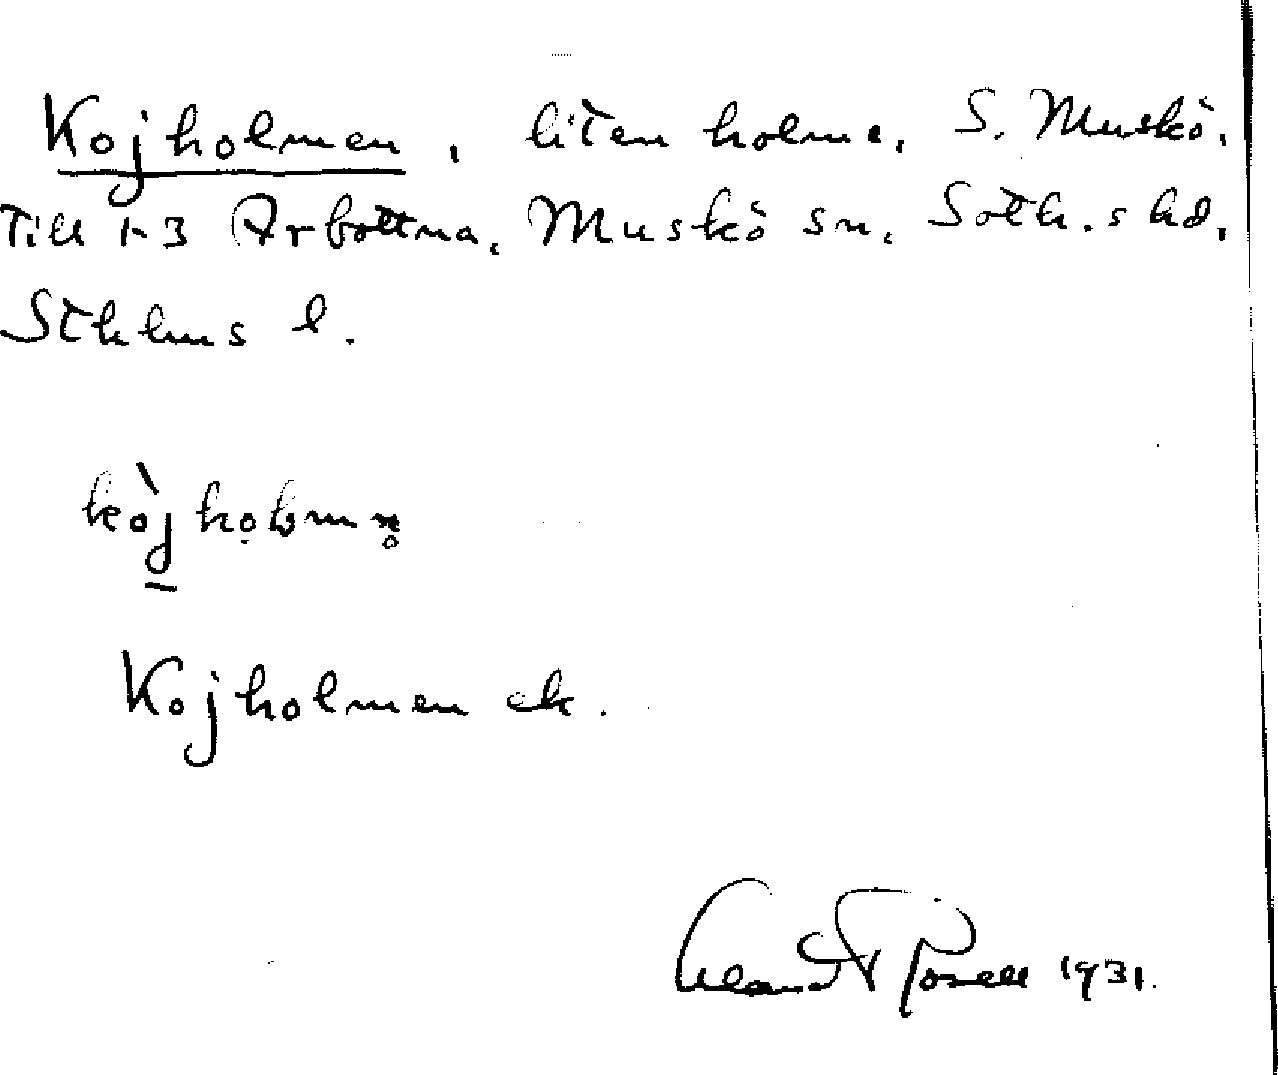 Kojholmen, liten holme, S. Muskö.
Till 1-3 Arbottna, Muskö sn, Soth.s hd,
Sthlms l.
kòjhọlmn̥
Kojholmen ek.
1931.